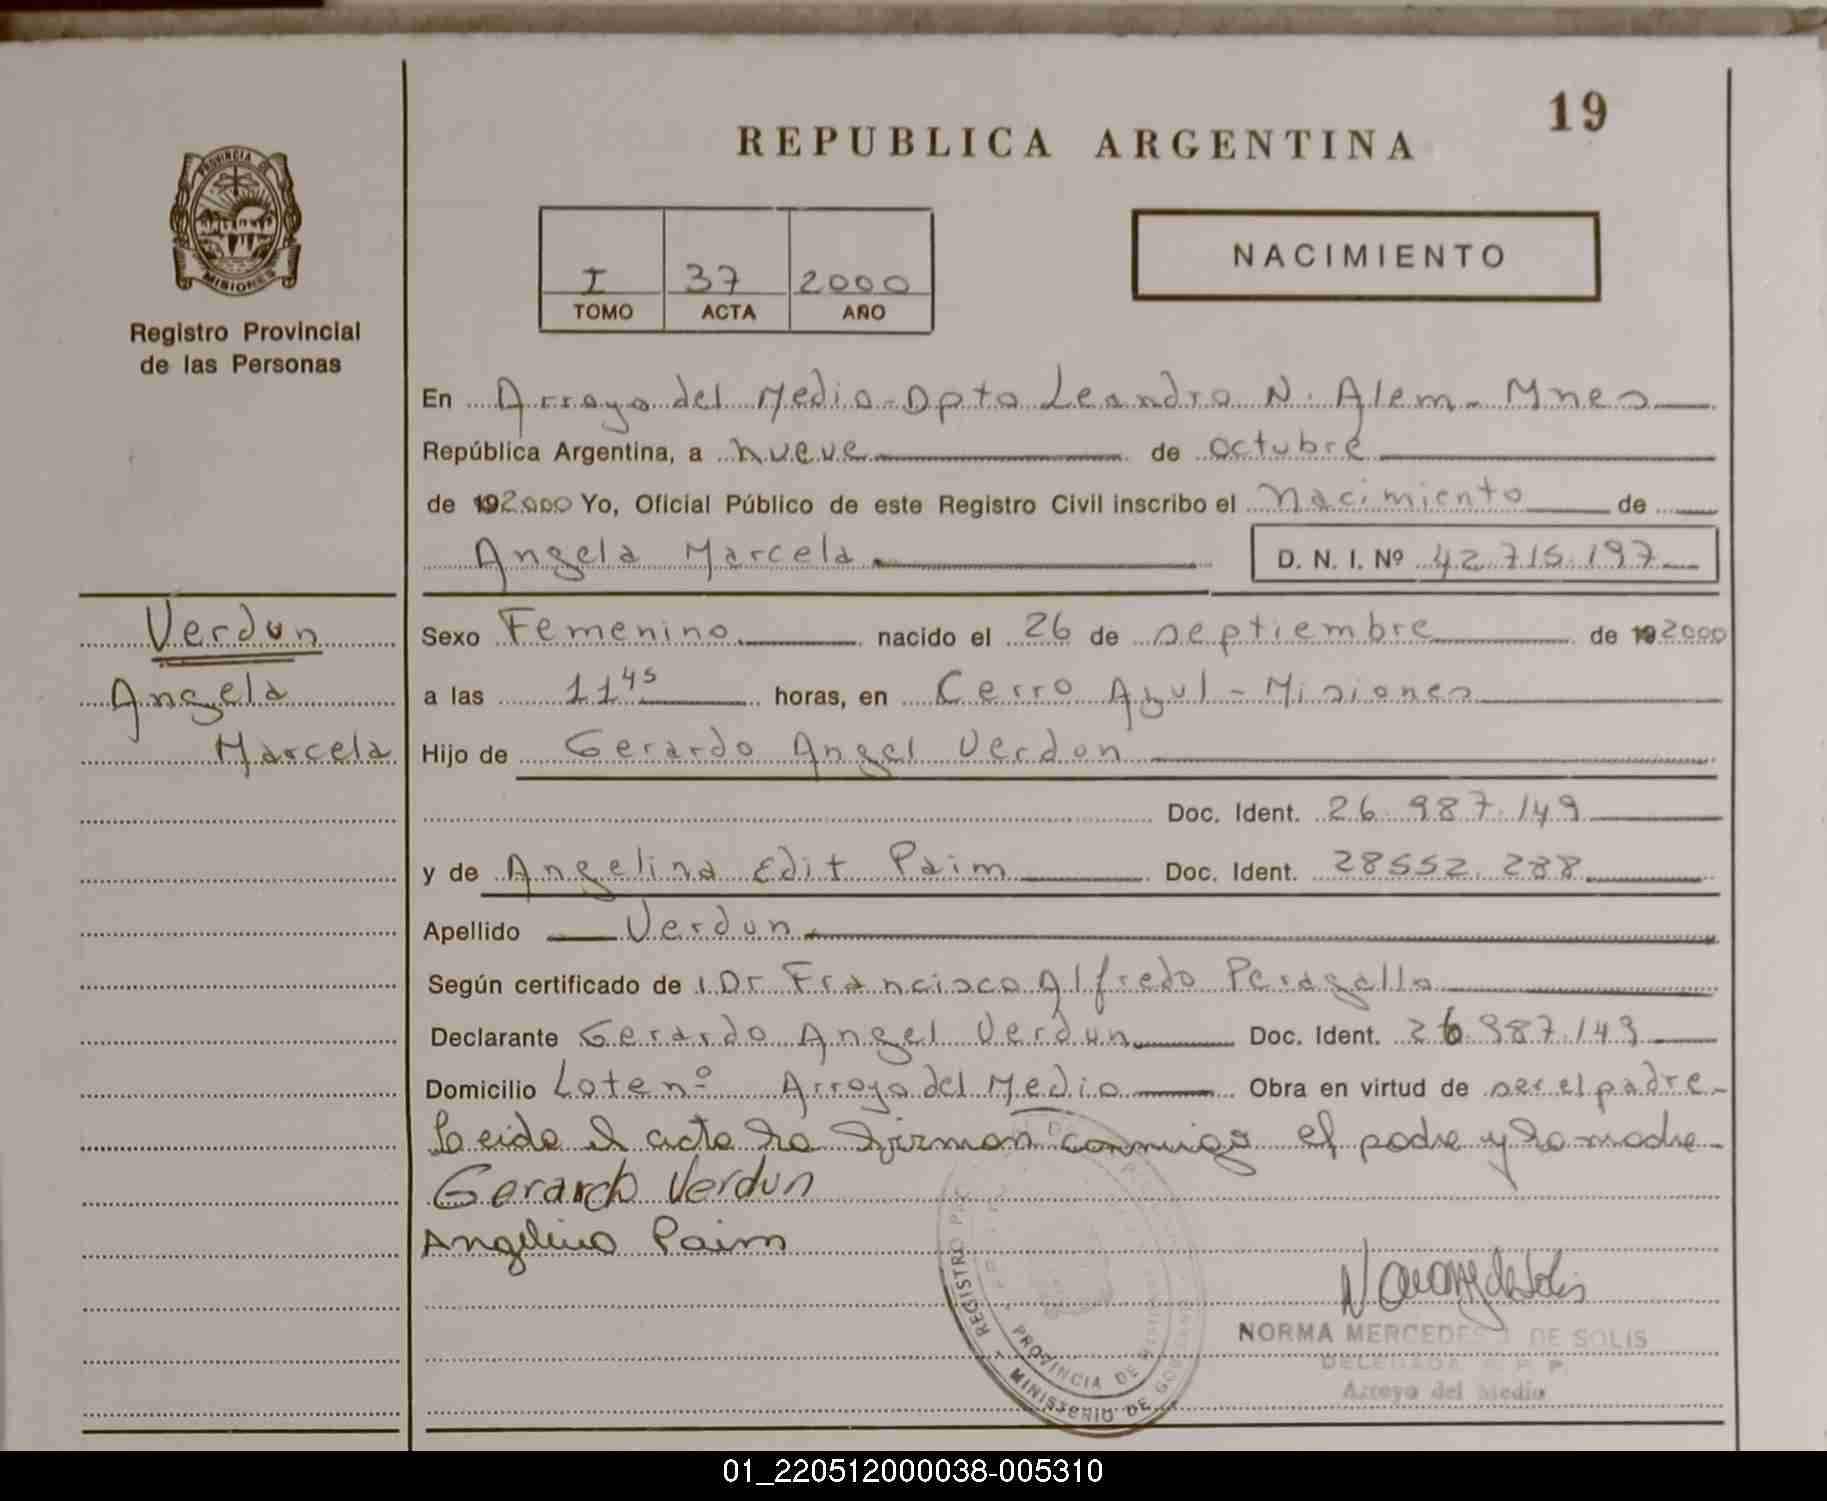 19
REPUBLICA ARGENTINA
PROVINCIA DE
MISIONES
Registro Provincial
de las Personas
I 37 2000
TOMO ACTA AÑO
NACIMIENTO
En Arroyo del Medio - Dpto Leandro N. Alem - Mnes
República Argentina, a nueve de octubre
de 192000 Yo, Oficial Público de este Registro Civil inscribo el Nacimiento de
Angela Marcela D. N. I. Nº 42.715.197
Verdun
Angela
Marcela
Sexo Femenino nacido el 26 de septiembre de 192000
a las 11 45 horas, en Cerro Azul - Misiones
Hijo de Gerardo Angel Verdun
Doc. Ident. 26.987.149
y de Angelina Edit Paim Doc. Ident. 28552.288
Apellido Verdun
Según certificado de Dr Francisco Alfredo Peragallo
Declarante Gerardo Angel Verdun Doc. Ident. 26.987.149
Domicilio Lote nº Arroyo del Medio Obra en virtud de ser el padre -
Leida el acta la firman conmigo el padre y la madre -
Gerardo Verdun
Angelina Paim
REGISTRO
PROVINCIA DE MISIONES
MINISTERIO DE GOBIERNO
NORMA MERCEDES DE SOLIS
DELEGADA R. P. P.
Arroyo del Medio
01_220512000038-005310